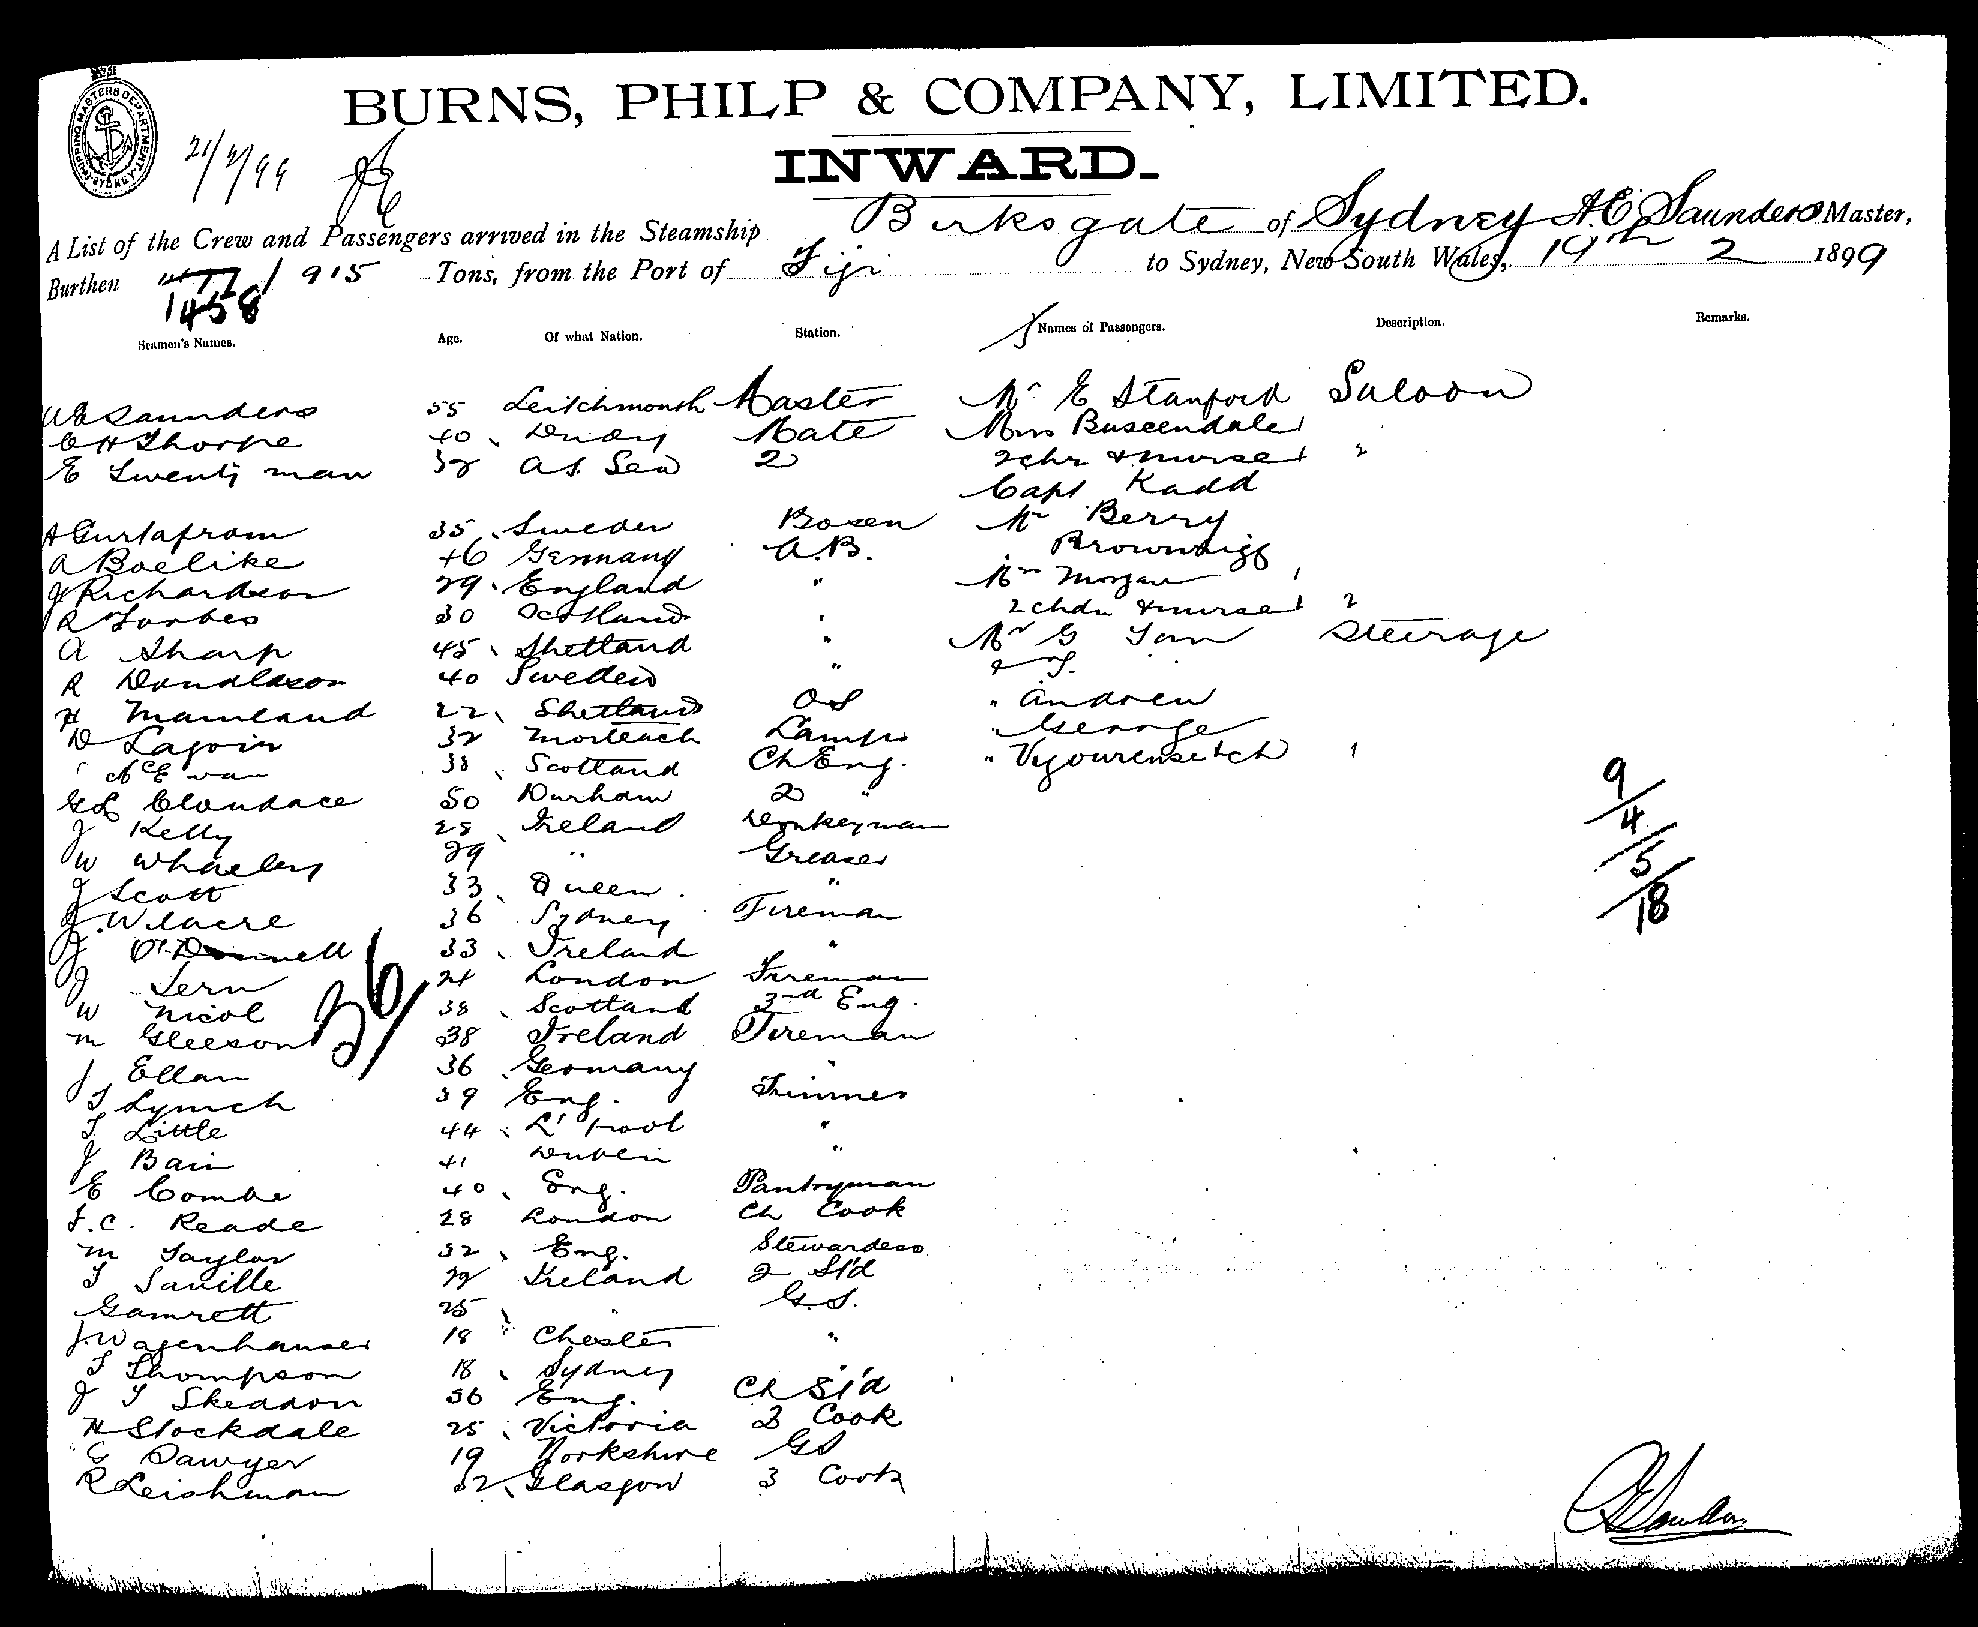 BURNS, PHILP & COMPANY, LIMITED.
21/2/99
INWARD.
A List of the Crew and Passengers arrived in the Steamship Birksgate of Sydney A.E. Saunders Master,
Burthen 1458/915 Tons, from the Port of Fiji to Sydney, New South Wales, 19th 2 1899
Seamen's Names. Age. Of what Nation. Station. Names of Passengers. Description. Remarks.
Saunders 55 Master Mr E Stanford Saloon
C H Thorpe 40 Mate Mrs
E Twentyman 32 At Sea 2 2 chn & nurse "
Capt Kadd
35 Sweden Bosen Mr Berry
A Boelike 46 Germany A.B.
J Richardson 29 England " Mrs Morgan
R Forbes 30 Scotland " 2 chdn & nurse
A Sharp 45 Shetland " Mr G Tom Steerage
R Donaldson 40 Sweden "
H Mainland 22 Shetland OS " Andrew
D 32 Lamps George
McEwan 38 Scotland Ch Eng. "
G L Cloudace 50 Durham 2 "
J Kelly 28 Ireland Donkeyman
W Whaeley 29 " Greaser
J Scott 33 Queen. "
J. Wilacre 36 Sydney Fireman
J O'Donnell 33 Ireland "
J Tern 24 London Fireman
W Nicol 38 Scotland 3rd Eng.
M Gleeson 38 Ireland Fireman
J Ellan 36 Germany "
T Lynch 39 Eng. Trimmer
T Little 44 L'pool "
J Bain 41 Dublin "
E Combe 40 Eng. Pantryman
F.C. Reade 28 London Ch Cook
M Taylor 32 Eng. Stewardess
T Saville 22 Ireland 2 St'd
Gamrett 25 " G.S.
J. Wagenhauser 18 Chester "
T Thompson 18 Sydney "
J T Skeadon 36 Eng. Ch St'd
H Stockdale 25 Victoria 2 Cook
G Sawyer 19 Yorkshire GS
R Leishman 32 Glasgow 3 Cook
36/
9/4/5/18